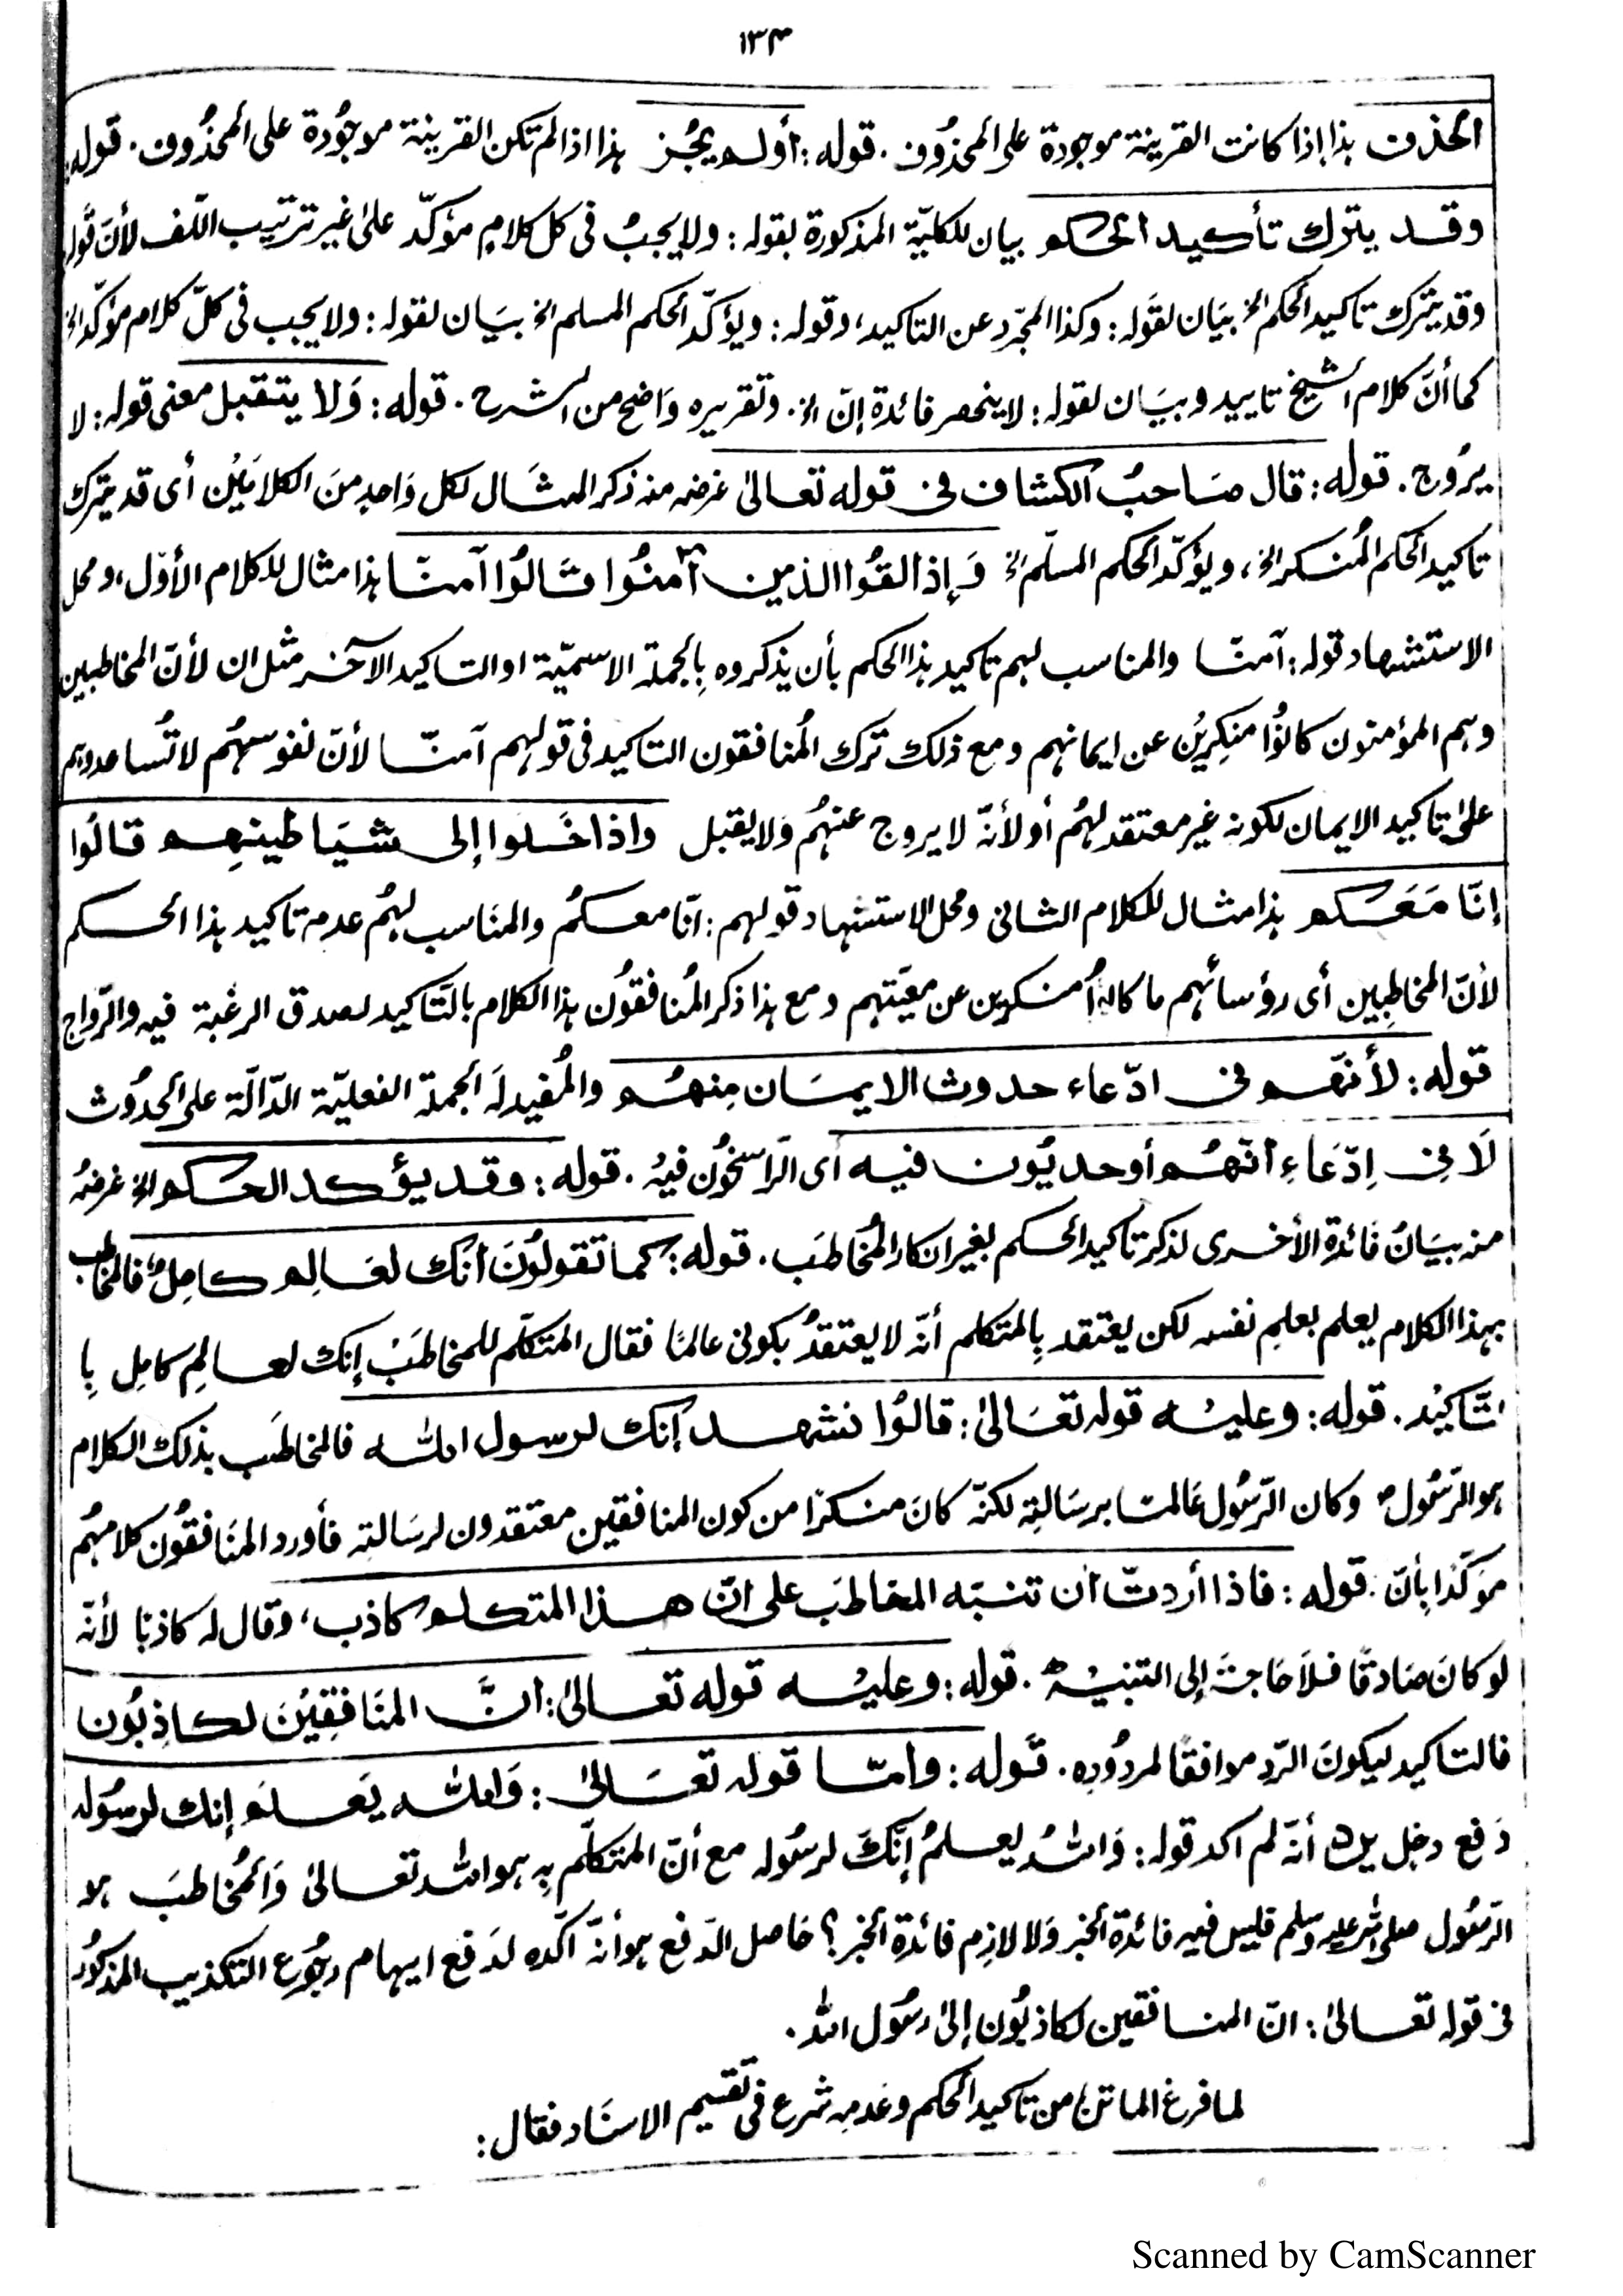 ١٣٤
الحذف هذا إذا كانت القرينة موجودة على المحذُوف. قوله: أو لم يجُز هذا اذا لم تكن القرينة موجُودة على المحذُوف. قوله:
وقد يترك تأكيد الحكم بيان للكليّة المذكورة بقوله: ولا يجبُ فى كل كلامٍ مؤكّد علىٰ غير ترتيب اللّف لأنّ قوله
وقد يترك تاكيد الحكم الخ بيَان لقوله: وكذا المجرّد عن التاكيد، وقوله: ويؤكّد الحكم المسلم الخ بيَان لقوله: ولا يجب فى كلّ كلام مؤكّد الخ
كما أنّ كلام الشيخ تاييد وبيَان لقوله: لا ينحصر فائدة إنّ الخ. وتقريره وَاضح من الشرح. قوله: وَلا يتقبل معنى قوله: لا
يرُوج. قوله: قال صَاحبُ الكشاف فى قوله تعالىٰ غرضه منه ذكر المثَال لكل وَاحدٍ منَ الكلامَيْن أى قد يترك
تاكيد الحكم المُنكر الخ، ويؤكّد الحكم المسلّم الخ وَإذا لقُوا الذين اٰمنُوا قَالُوا آمنّا هذا مثال للكلام الأوّل، ومحل
الاستشهاد قوله: آمنّا والمناسب لهم تاكيد هذا الحكم بأن يذكروه بِالجملة الاسميّة او التاكيد الآخر مثل ان لأنّ المخاطبين
وهم المؤمنون كانُوْا منكِرِيْن عن ايمانهم ومع ذلك ترك المُنافقون التاكيد فى قولهم آمنّا لأنّ نفوسهُم لا تُساعدهم
علىٰ تاكيد الايمان لكونه غير معتقد لهُم أو لأنّه لا يروج عنهُم وَلا يقبل واذا خَلوا إلى شيَاطينِهِم قالُوا
إنّا مَعَكم هذا مثال للكلام الثانى ومحل الاستشهاد قولهم: انّا معكمُ والمنَاسب لهُم عدم تاكيد هذا الحكم
لأنّ المخاطِبين أى رؤسائهم ما كانوا مُنكرين عن معيّتهم ومع هذا ذكر المُنافقُون هذا الكلام بالتّاكيد لصدق الرغبة فيه والرّواج
قوله: لأنّهم فى ادّعاء حدوث الايمَان مِنهُم والمُفيد لَه الجملة الفعليّة الدّالّة على الحدُوث
لَا فِى اِدّعَاءِ انّهُم أوحديُون فيه أى الرّاسخُون فيهُ. قوله: وقد يؤكد الحكم الخ غرضهُ
منه بيَانُ فَائدة الأخرى لذكر تاكيد الحكم بغير انكار المُخاطبَ. قوله: كما تقولُوْنَ انك لعَالِم كامِلٌ فالمخاطب
بهذا الكلام يعلم بعلمِ نفسه لكن يعتقد بِالمتكلم أنّه لا يعتقدُ بكونى عالمًا فقال المتكلّم للمخاطبَ إنك لعالِم كامِل بِا
لتَّاكيْد. قوله: وعليْه قوله تعَالىٰ: قالوُا نشهد إنك لرسول الله فالمخاطَب بذلك الكلام
هو الرّسُول وكان الرّسُول عَالمًا برسَالتِه لكنّه كانَ منكرًا من كون المنافقين معتقدون لرسَالته فأورد المنَافقُون كلامهُم
مؤكّدًا بِأنّ. قوله: فاذا أردتّ ان تنبّه المخاطبَ على انّ هذا المتكلم كاذب، وقال له كاذبًا لأنّه
لو كانَ صَادقًا فلَا حَاجةَ إلى التنبيْه. قوله: وعليْه قوله تعالىٰ: انَّ المنَافِقِيْنَ لكاذِبُون
فالتاكيد ليكونَ الرّد موافقًا لمردُوده. قَوله: وامّا قوله تعَالىٰ: وَالله يَعلم إنك لرسُوله
دَفع دخل يرد أنّه لم اكد قوله: وَاللهُ يعلمُ إنّكَ لرسُوله مع أنّ المتكلّم به هو الله تعالىٰ وَالمُخاطبَ هو
الرّسُول صلى الله عليه وسلم فليس فيه فائدة الخبر وَلا لازم فائدة الخبر؟ حَاصل الدّفع هو أنّه اكّده لدَفع ايهام رجُوع التكذيب المذكُور
فى قوله تعالىٰ: انّ المنافقين لكاذبُون إلىٰ رسُول الله.
لما فرغ الماتن من تاكيد الحكم وعَدمِه شرع فى تقسيم الاسنَاد فقال:
Scanned by CamScanner